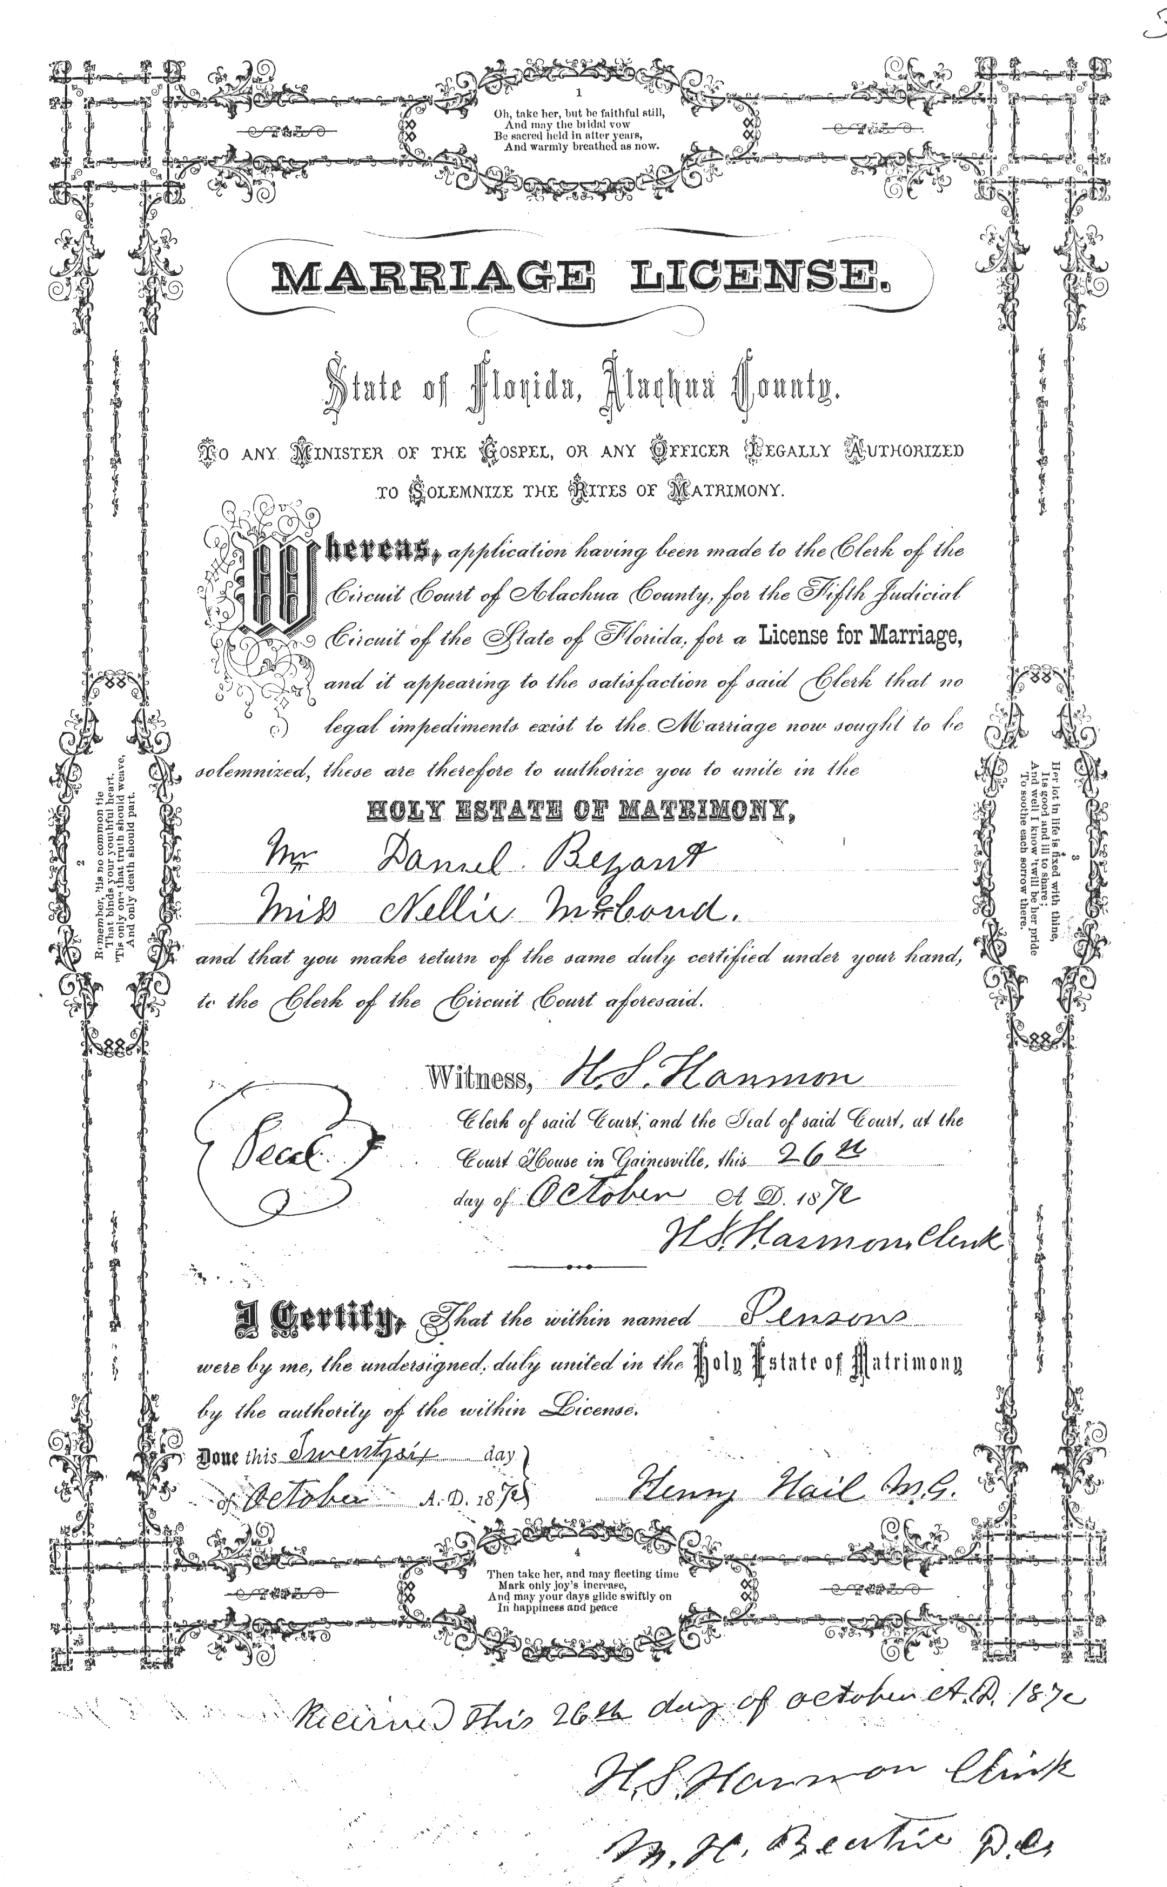 1
Oh, take her, but be faithful still,
And may the bridal vow
Be sacred held in after years,
And warmly breathed as now.
MARRIAGE LICENSE.
State of Florida, Alachua County.
TO ANY MINISTER OF THE GOSPEL, OR ANY OFFICER LEGALLY AUTHORIZED
TO SOLEMNIZE THE RITES OF MATRIMONY.
Whereas, application having been made to the Clerk of the
Circuit Court of Alachua County, for the Fifth Judicial
Circuit of the State of Florida, for a License for Marriage,
and it appearing to the satisfaction of said Clerk that no
legal impediments exist to the Marriage now sought to be
solemnized, these are therefore to authorize you to unite in the
HOLY ESTATE OF MATRIMONY,
Mr Daniel Bryant
Miss Nellie McCord.
and that you make return of the same duly certified under your hand,
to the Clerk of the Circuit Court aforesaid.
Witness, H. S. Harmon
Seal
Clerk of said Court, and the Seal of said Court, at the
Court House in Gainesville, this 26th
day of October A D. 1872
H. S. Harmon, Clerk
I Certify, That the within named Persons
were by me, the undersigned, duly united in the Holy Estate of Matrimony
by the authority of the within License.
Done this Twentysix day
of October A. D. 1872
Henry Hail M.G.
2
Remember, 'tis no common tie
That binds your youthful heart.
'Tis only one that truth should weave,
And only death should part.
3
Her lot in life is fixed with thine,
Its good and ill to share;
And well I know 'twill be her pride
To soothe each sorrow there.
4
Then take her, and may fleeting time
Mark only joy's increase,
And may your days glide swiftly on
In happiness and peace
Received this 26th day of October A.D. 1872
H. S. Harmon Clerk
M. H. Beartie D.C.